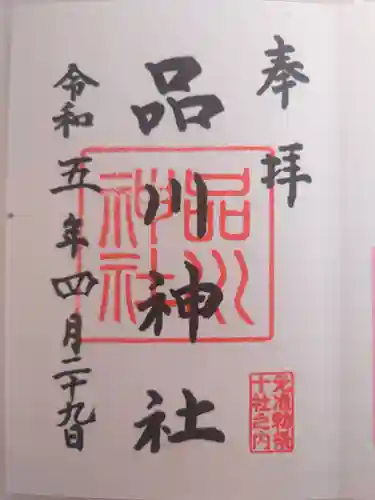 奉拝
品川神社
令和五年四月二十九日
品川
神社
元准勅祭
十社之内